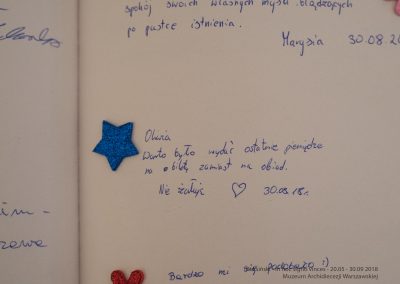 spokój swoich własnych myśli błądzących
po pustce istnienia.
Marysia 30.08.20
Oliwia
Warto było wydać ostatnie pieniądze
na bilety zamiast na obiad.
Nie żałuję ♡ 30.08.18r.
zawa
Bardzo mi się podobało :)
in hoc signo vinces - 20.05 - 30.09.2018
Muzeum Archidiecezji Warszawskiej